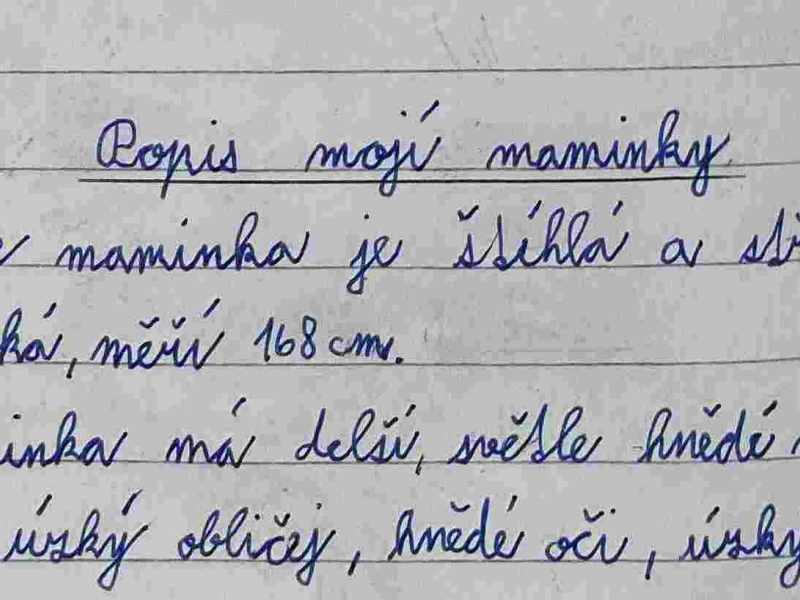 Popis mojí maminky
maminka je štíhlá a
měří 168 cm.
má delší, světle hnědé
úzký obličej, hnědé oči, úzký